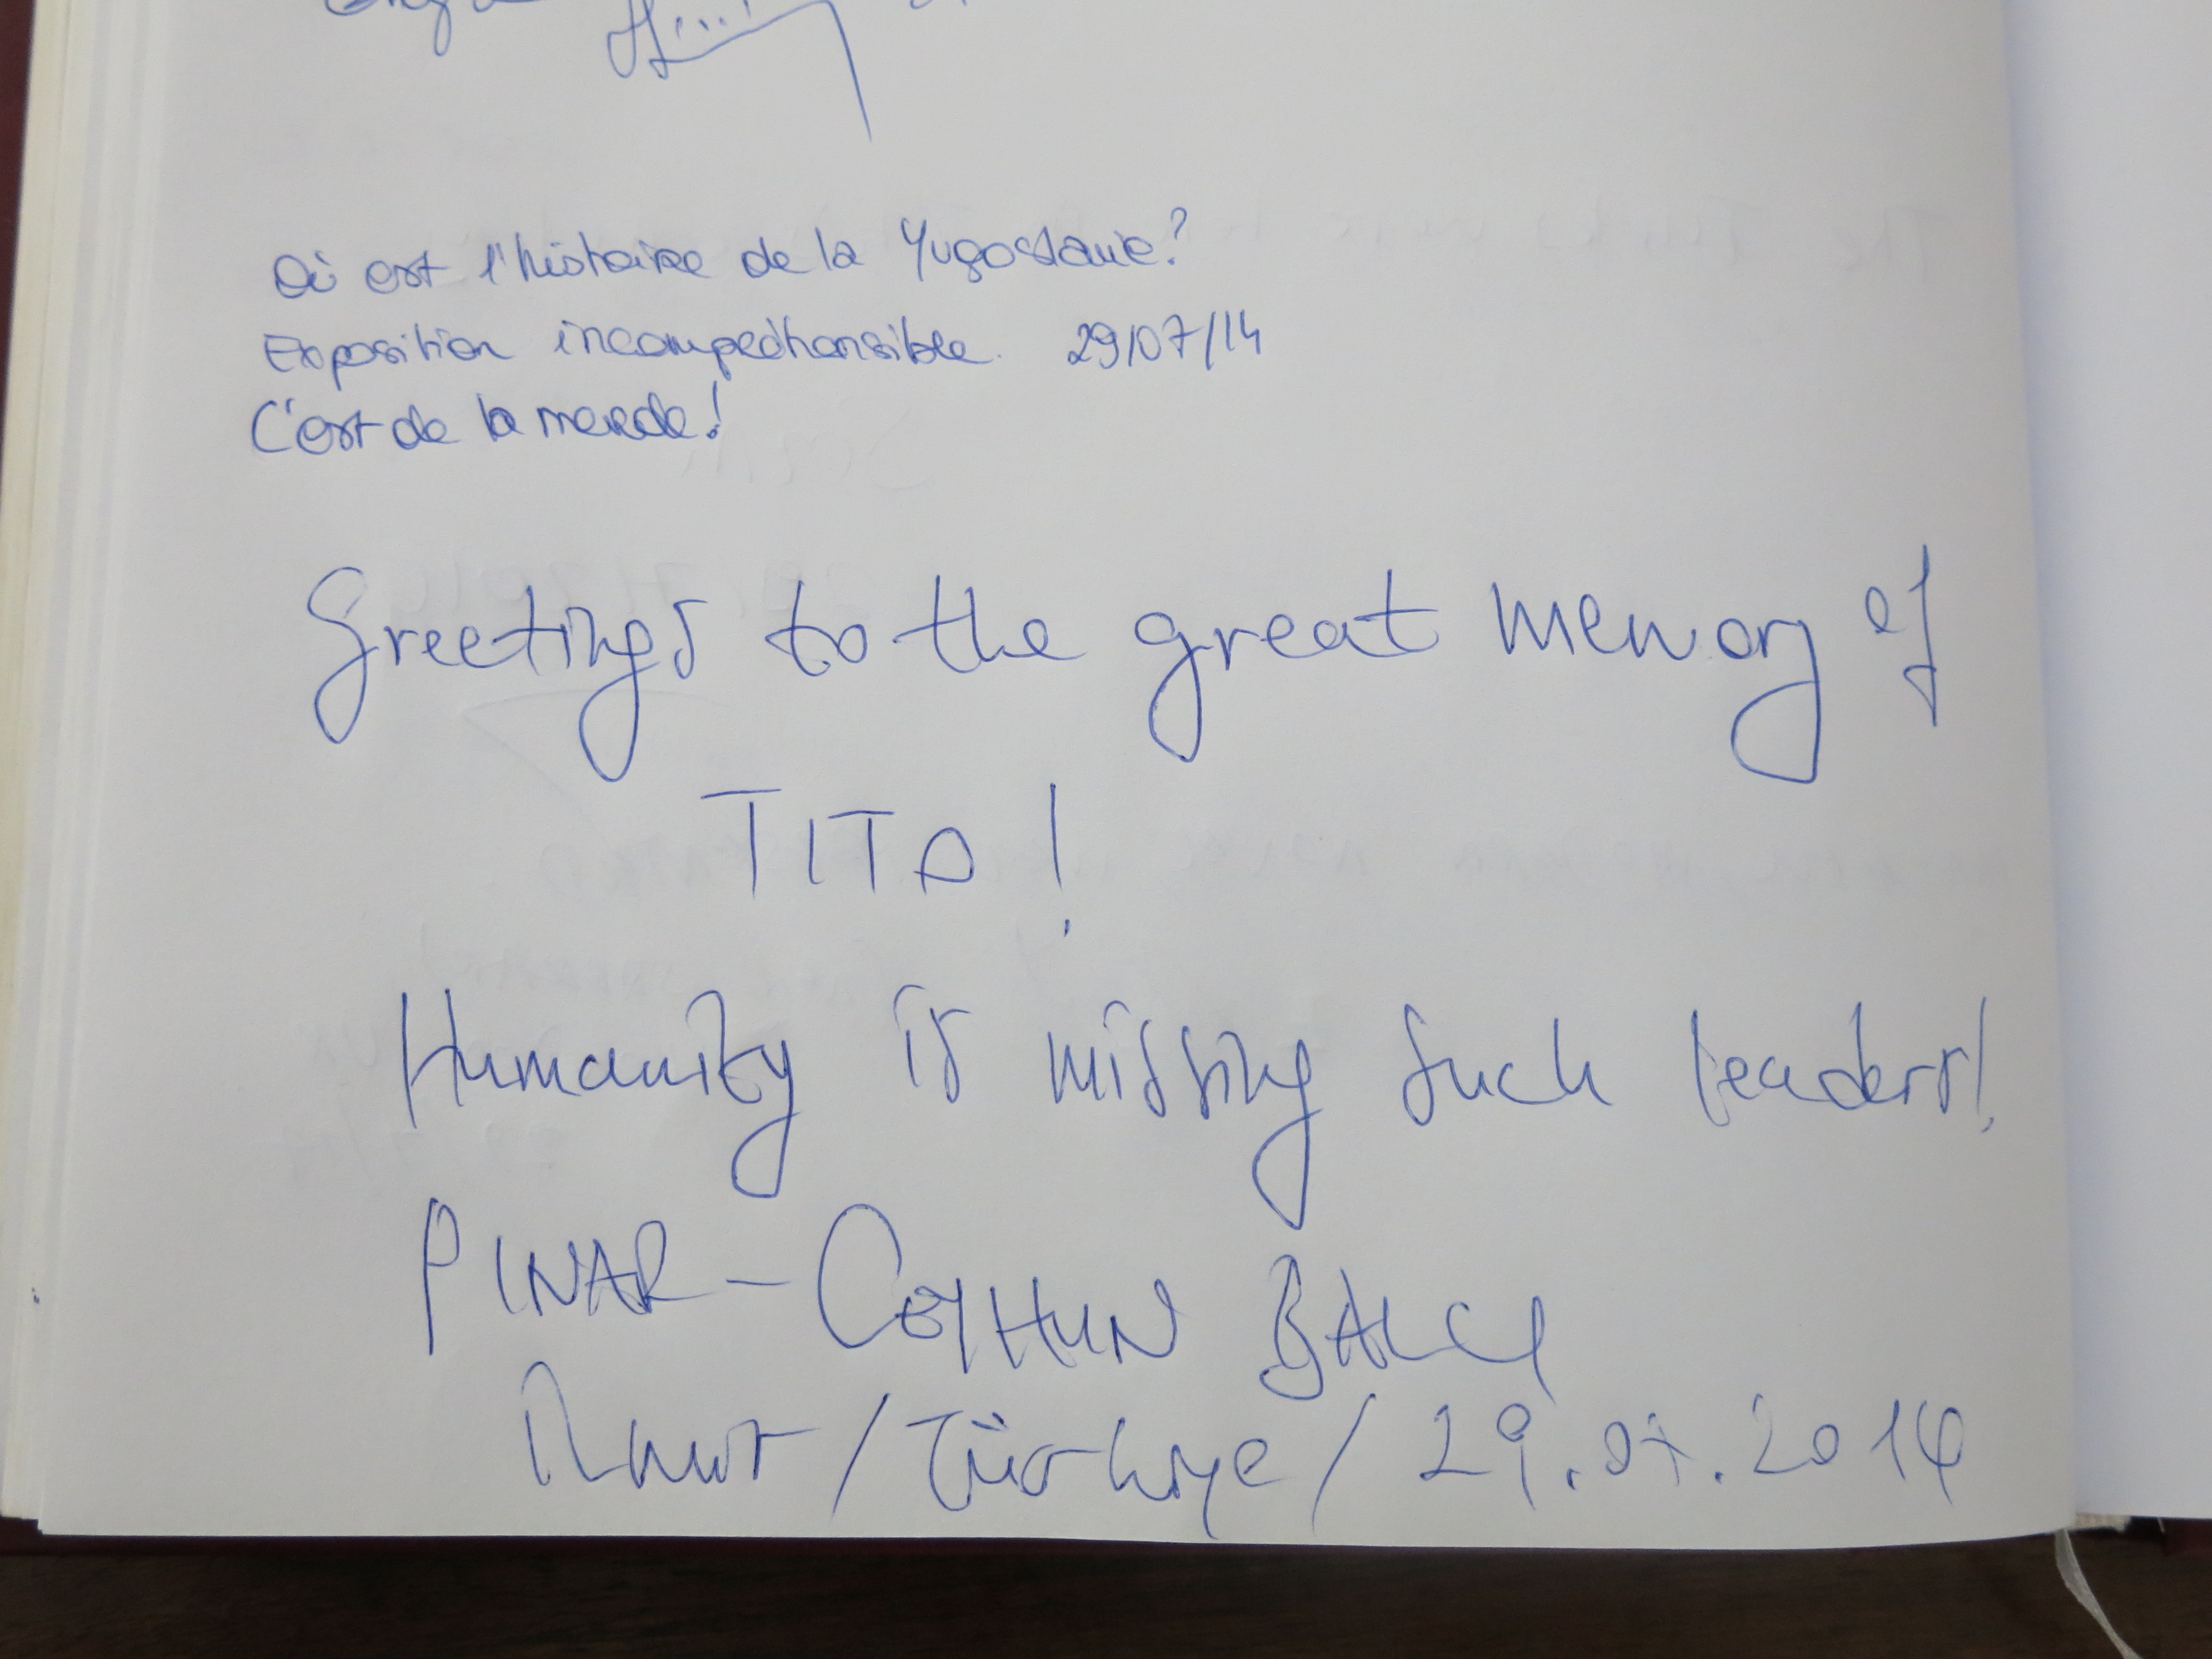 Où est l'histoire de la Yugoslavie?
Exposition incompéhensible 29/07/14
C'est de la merde!
Greetings to the great memory of
TITO!
Humanity is missing such leaders!
PINAR - CEYHUN BALCI
/ Türkiye / 29.07.2014